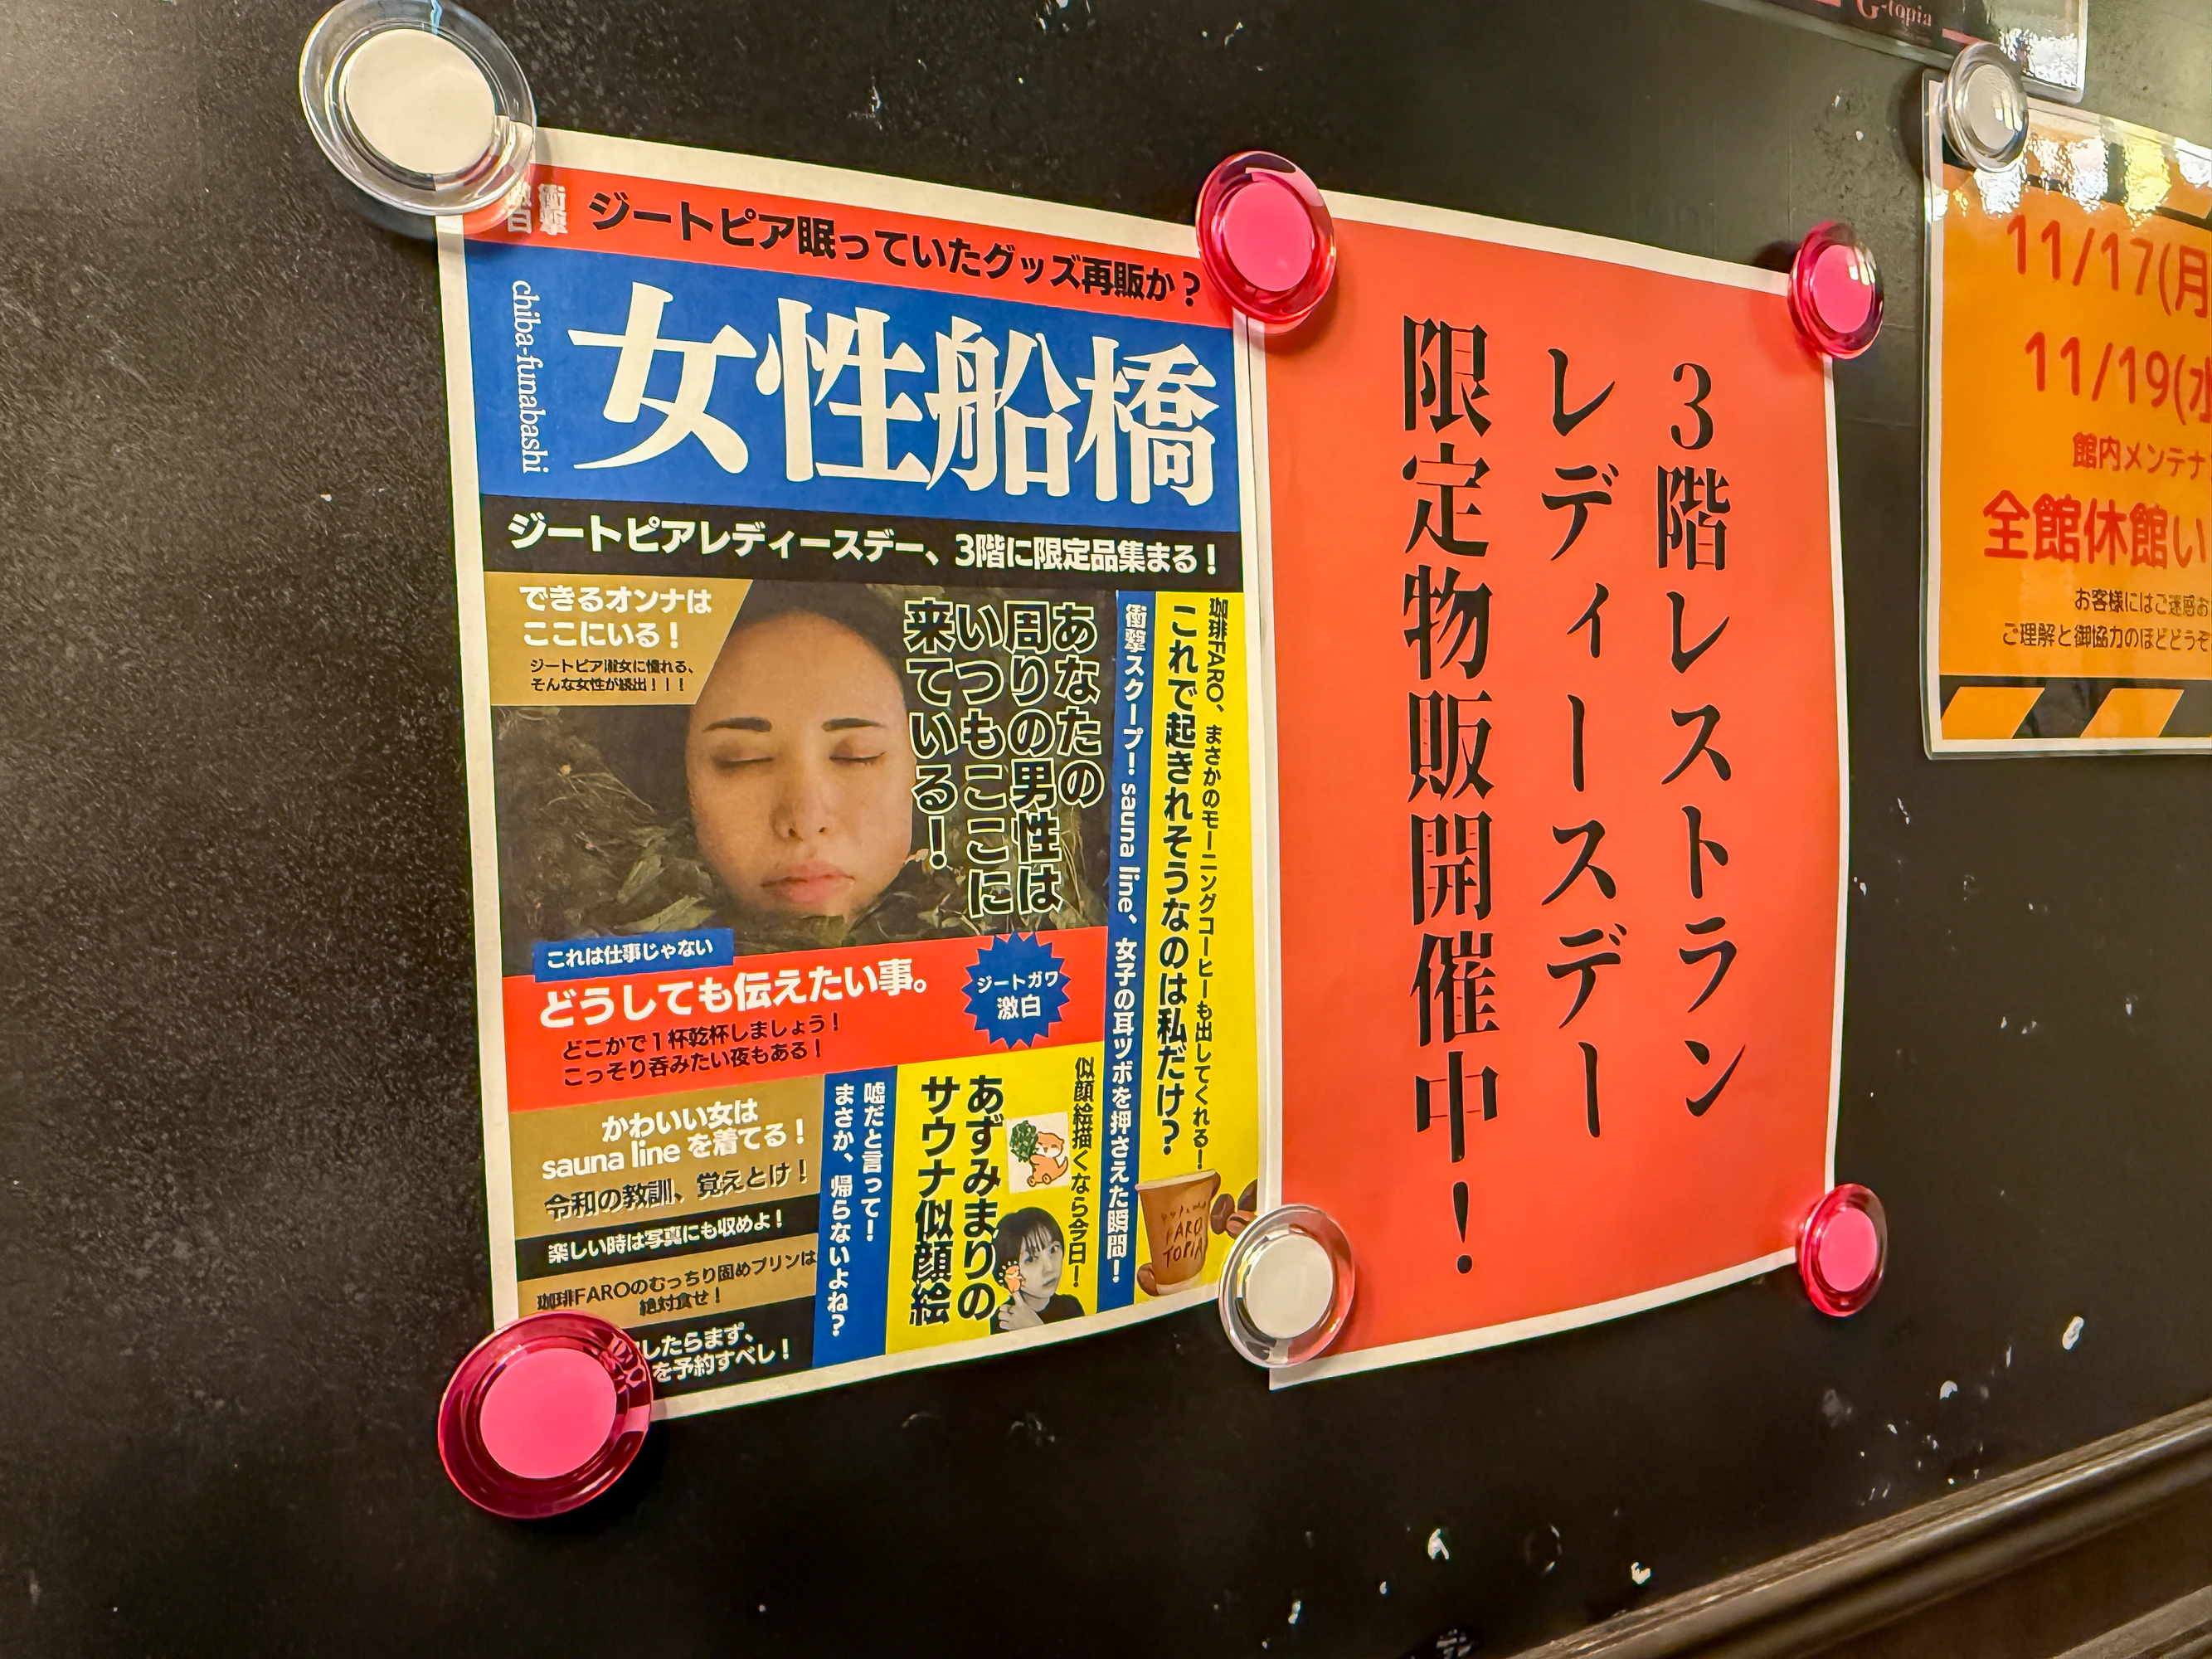 G-topia
衝撃
ジートピア眠っていたグッズ再販か？
chiba-funabashi
女性船橋
ジートピアレディースデー、3階に限定品集まる！
できるオンナは
ここにいる！
ジートピア淑女に憧れる、
そんな女性が続出！！！
あなたの
周りの男性は
いつもここに
来ている！
珈琲FARO、まさかのモーニングコーヒーも出してくれる！
これで起きれそうなのは私だけ？
衝撃スクープ！sauna line、女子の耳ツボを押さえた瞬間！
これは仕事じゃない
どうしても伝えたい事。
どこかで１杯乾杯しましょう！
こっそり呑みたい夜もある！
ジートガワ
激白
かわいい女は
sauna line を着てる！
令和の教訓、覚えとけ！
楽しい時は写真にも収めよ！
珈琲FAROのむっちり固めプリンは
絶対食せ！
したらまず、
を予約すべし！
嘘だと言って！
まさか、帰らないよね？
似顔絵描くなら今日！
あずみまりの
サウナ似顔絵
FARO
TOPIA
3階レストラン
レディースデー
限定物販開催中！
11/17(月
11/19(水
館内メンテナ
全館休館い
お客様にはご迷惑お
ご理解と御協力のほどどうぞ